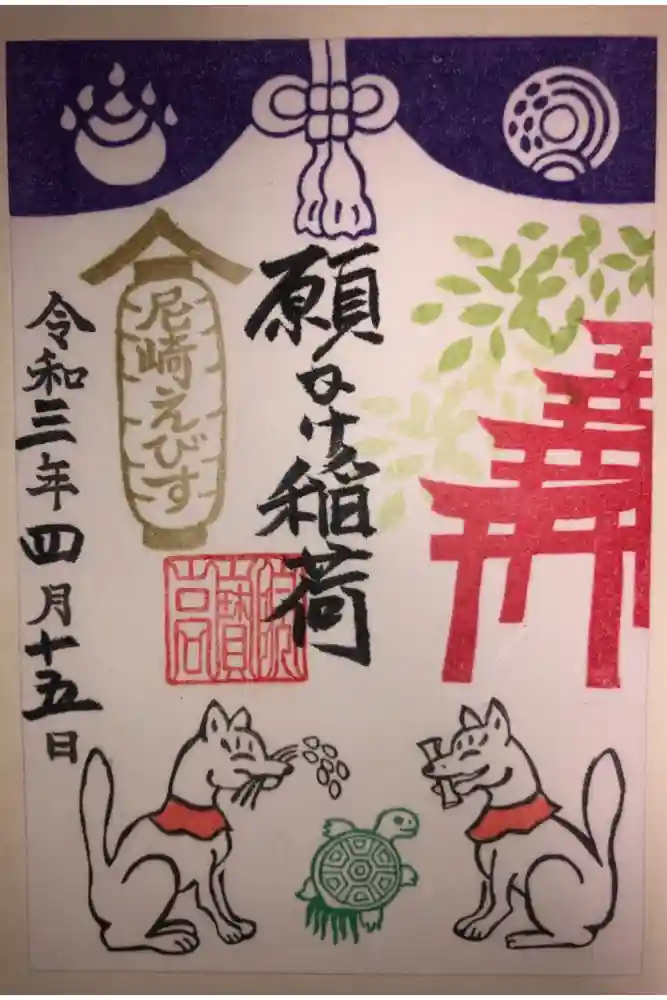 願かけ稲荷
尼崎えびす
令和三年四月十五日